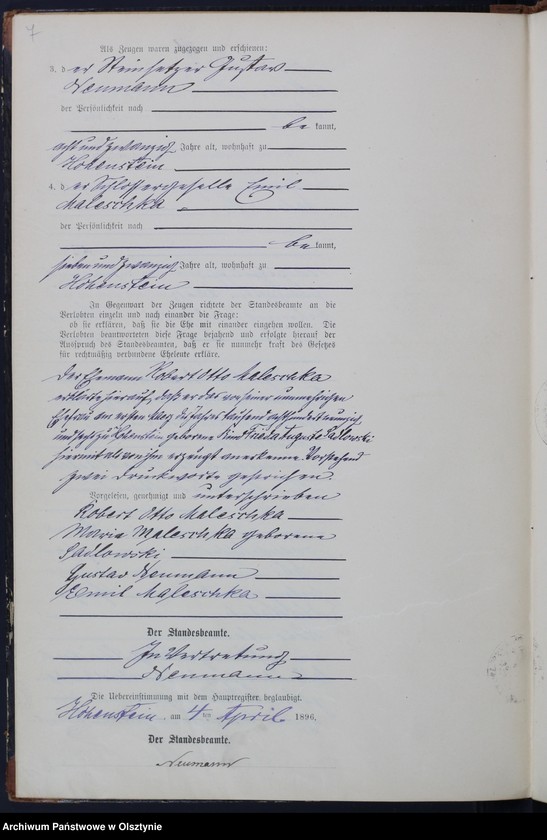 7
Als Zeugen waren zugezogen und erschienen:
3. der Steinsetzer Gustav
Neumann
der Persönlichkeit nach
be kannt,
acht und zwanzig Jahre alt, wohnhaft zu
Hohenstein
4. der Schlossergeselle Emil
Maleschka
der Persönlichkeit nach
be kannt,
sieben und zwanzig Jahre alt, wohnhaft zu
Hohenstein
In Gegenwart der Zeugen richtete der Standesbeamte an die
Verlobten einzeln und nach einander die Frage:
ob sie erklären, daß sie die Ehe mit einander eingehen wollen. Die
Verlobten beantworteten diese Frage bejahend und erfolgte hierauf der
Ausspruch des Standesbeamten, daß er sie nunmehr kraft des Gesetzes
für rechtmäßig verbundene Eheleute erkläre.
Der Ehemann Robert Otto Maleschka
erklärte hierauf, daß er das von seiner nunmehrigen
Ehefrau am ersten des Jahres tausend achthundert neunzig
und sechs zu Hohenstein geborene Kind Frieda Auguste Sadlowski
hiermit als von ihm erzeugt anerkenne. Vorstehend
zwei Druckworte gestrichen.
Vorgelesen, genehmigt und unterschrieben
Robert Otto Maleschka
Maria Maleschka geborene
Sadlowski
Gustav Neumann
Emil Maleschka
Der Standesbeamte.
In Vertretung
Neumann
Die Uebereinstimmung mit dem Hauptregister beglaubigt.
Hohenstein am 4ten April 1896.
Der Standesbeamte.
Neumann
Archiwum Państwowe w Olsztynie